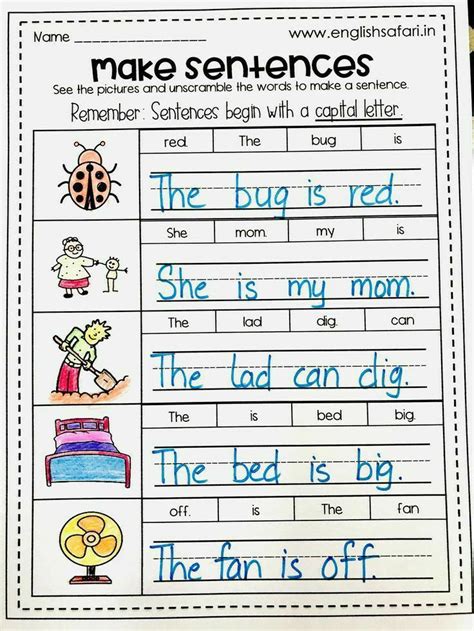 Name
www.englishsafari.in
make sentences
See the pictures and unscramble the words to make a sentence.
Remember: Sentences begin with a capital letter.
red. The bug is
The bug is red.
She mom. my is
She is my mom.
The lad dig. can
The lad can dig.
The is bed big.
The bed is big.
off. is The fan
The fan is off.